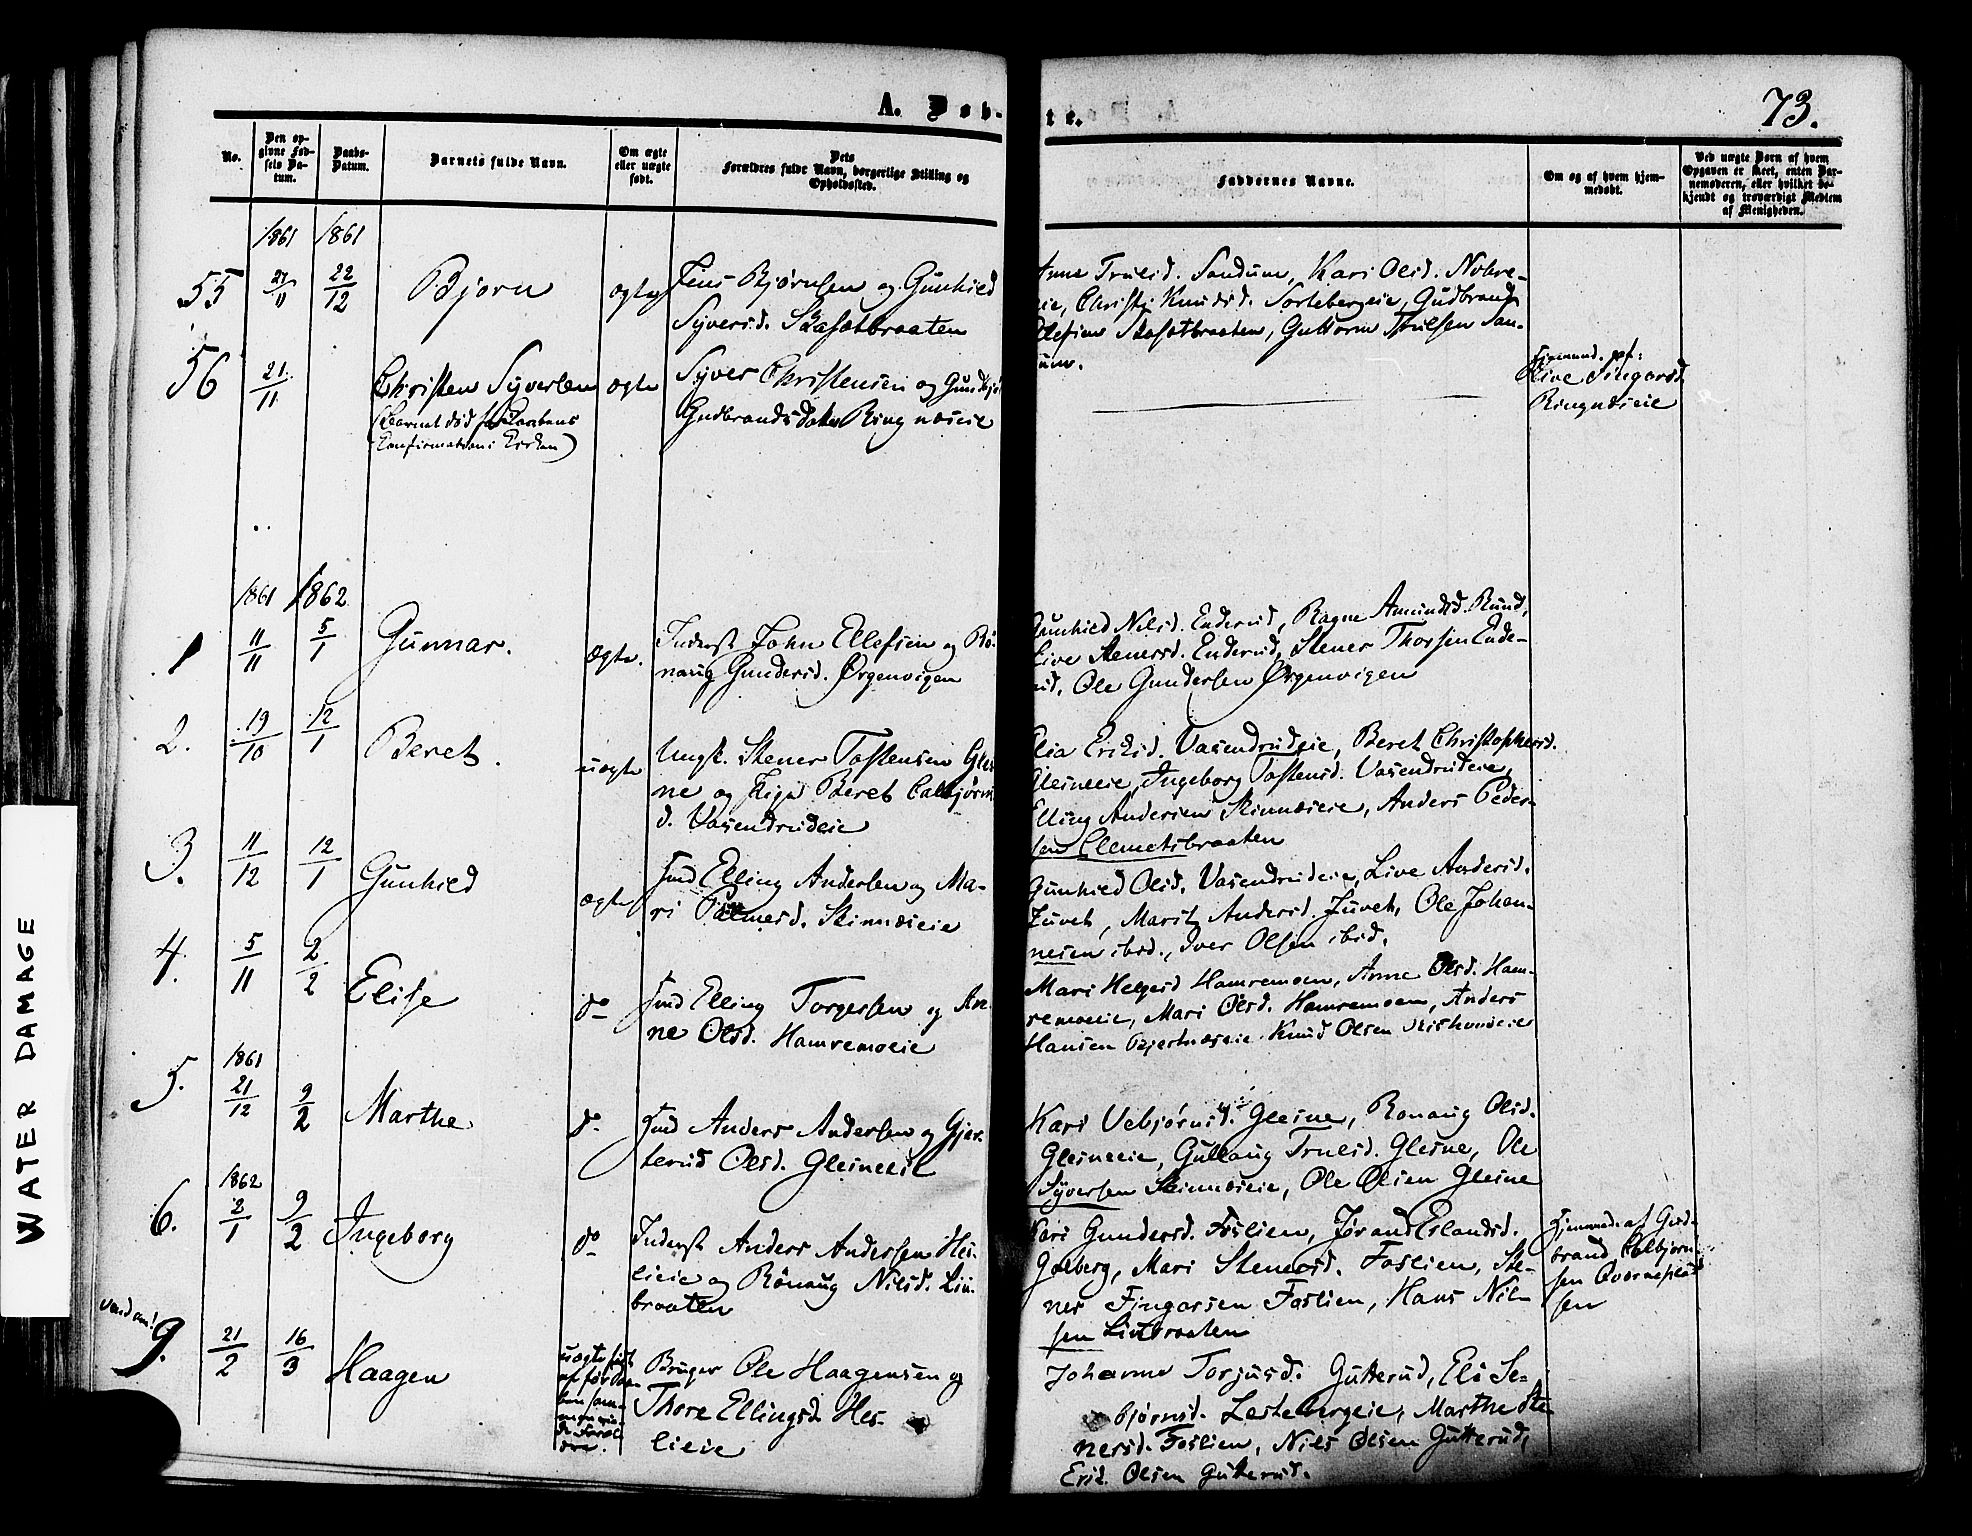 A. Døb-
te.
73.
No.
Den op-
givne Fød-
sels Da-
tum.
Daabs-
Datum.
Barnets fulde Navn.
Om ægte
eller uægte
født.
Dets
Forældres fulde Navn, borgerlige Stilling og
Opholdssted.
Faddernes Navne.
Om og af hvem hjem-
medøbt.
Ved uægte Børn af hvem
Opgaven er skeet, enten Bar-
nemoderen, eller hvilket be-
kjendt og troværdigt Medlem
af Menigheden.
1861 1861
55 21/11 22/12 Bjørn ægte Jens Bjørnsen og Gunhild
Syversd. Skasætbraaten
Anne Trulsd. Sandum, Kari Olsd. Nobre-
eie, Christi Knudsd. Sortebergeie, Gudbrand
Ellefsen Skasætbraaten, Guttorm Trulsen San-
dum.
56 21/11 Christen Syversen ægte Syver Christensen og
Gudbrandsdatter Ringnæseie
(Barnet død før Daabens
Confirmation i Kirken)
Hjemmed. af:
Live Fingarsd.
Ringnæseie
1861 1862
1 11/11 5/1 Gunnar. ægte. Inderst John Ellefsen og Rø-
naug Gundersd. Ørgenvigen
Gunhild Nilsd. Enderud, Ragne Amundsd. Rund,
Live Stenersd. Enderud, Stener Thorsen Ende-
rud, Ole Gundersen Ørgenvigen
2. 19/10 12/1 Beret. uægte Ungk. Stener Tostensen Gles-
ne og Pige Beret Colbjørns
d. Vasendrudeie
Eli Eriksd. Vasendrudeie, Beret Christophersd.
Glesneeie, Ingeborg Tostensd. Vasendrudeie,
Elling Andersen Skinnæseie, Anders Peder-
sen Clemetsbraaten
3. 11/12 12/1 Gunhild ægte Hmd Elling Andersen og Ma-
ri Palmesd. Skinnæseie
Gunhild Olsd. Vasendrudeie, Live Andersd.
Juvet, Marit Andersd. Juvet, Ole Johan-
nesen ibid., Iver Olsen ibid.
4. 5/11 2/2 Elise do Hmd Elling Torgersen og An-
ne Olsd. Hamremoeie
Mari Helgesd Hamremoen, Anne Olsd. Ham-
remoeie, Mari Olsd. Hamremoen, Anders
Hansen Bjertnæseie Knud Olsen
1861
5. 21/12 9/2 Marthe do Hmd Anders Andersen og Gjer-
terud Olsd. Glesneeie
Kari Vebjørnsd. Glesne, Rønaug Olsd.
Glesneeie, Gullaug Trulsd. Glesne, Ole
Syversen Skinnæseie, Ole Olsen Glesne
1862
6. 2/1 9/2 Ingeborg do Inderst Anders Andersen Hes-
lieie og Rønaug Nilsd. Lin-
braaten
Kari Gundersd. Foslien, Jørand Erlandsd.
Golberg, Mari Stenersd. Foslien, Ste-
ner Fingarsen Foslien, Hans Nil-
sen Linbraaten
Hjemmed. af Gud-
brand Colbjørn-
sen Qvarneplad-
sen
vend om!
9. 21/2 16/3 Haagen Bruger Ole Haagensen og
Thore Ellingsd. Hes-
lieie
uægte født
af før Daa-
ben sam-
menvie-
de Foræl-
dre.
Johanne Torjusd. Gutterud, Eli Se-
bjørnsd. Lesteberg eie, Marthe Ste-
nersd. Foslien, Nils Olsen Gutterud,
Erik Olsen Gutterud.
WATER DAMAGE